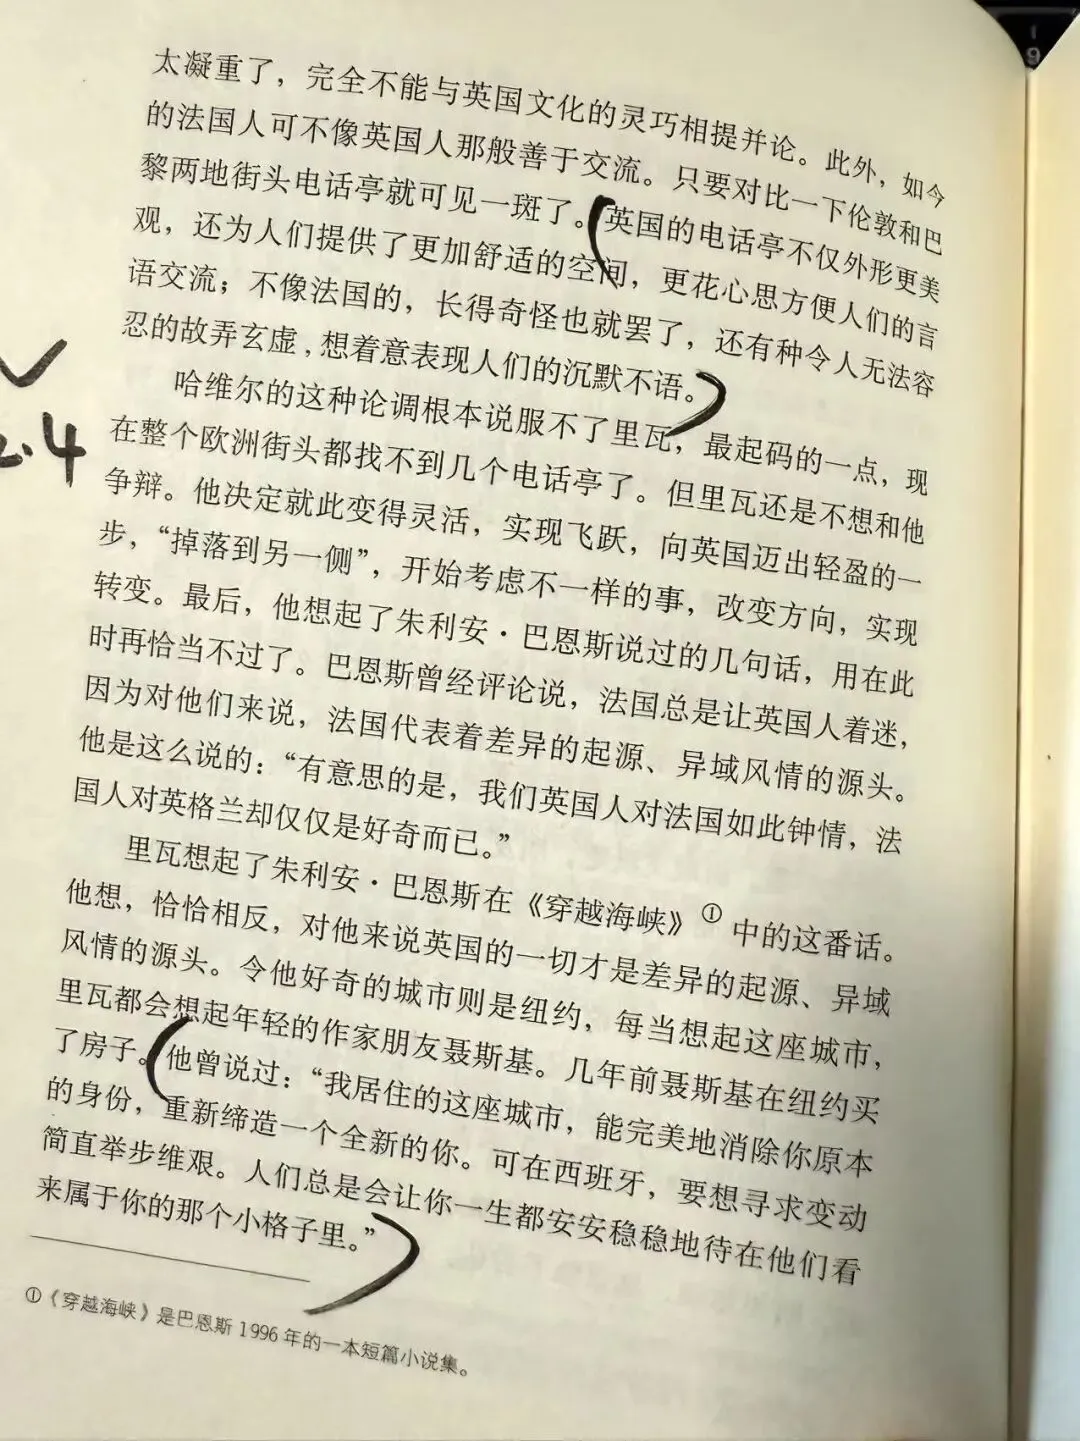 太凝重了，完全不能与英国文化的灵巧相提并论。此外，如今
的法国人可不像英国人那般善于交流。只要对比一下伦敦和巴
黎两地街头电话亭就可见一斑了。英国的电话亭不仅外形更美
观，还为人们提供了更加舒适的空间，更花心思方便人们的言
语交流；不像法国的，长得奇怪也就罢了，还有种令人无法容
忍的故弄玄虚，想着意表现人们的沉默不语。
哈维尔的这种论调根本说服不了里瓦，最起码的一点，现
在整个欧洲街头都找不到几个电话亭了。但里瓦还是不想和他
争辩。他决定就此变得灵活，实现飞跃，向英国迈出轻盈的一
步，“掉落到另一侧”，开始考虑不一样的事，改变方向，实现
转变。最后，他想起了朱利安·巴恩斯说过的几句话，用在此
时再恰当不过了。巴恩斯曾经评论说，法国总是让英国人着迷，
因为对他们来说，法国代表着差异的起源、异域风情的源头。
他是这么说的：“有意思的是，我们英国人对法国如此钟情，法
国人对英格兰却仅仅是好奇而已。”
里瓦想起了朱利安·巴恩斯在《穿越海峡》①中的这番话。
他想，恰恰相反，对他来说英国的一切才是差异的起源、异域
风情的源头。令他好奇的城市则是纽约，每当想起这座城市，
里瓦都会想起年轻的作家朋友聂斯基。几年前聂斯基在纽约买
了房子。他曾说过：“我居住的这座城市，能完美地消除你原本
的身份，重新缔造一个全新的你。可在西班牙，要想寻求变动
简直举步维艰。人们总是会让你一生都安安稳稳地待在他们看
来属于你的那个小格子里。”
①《穿越海峡》是巴恩斯1996年的一本短篇小说集。
2.4
9